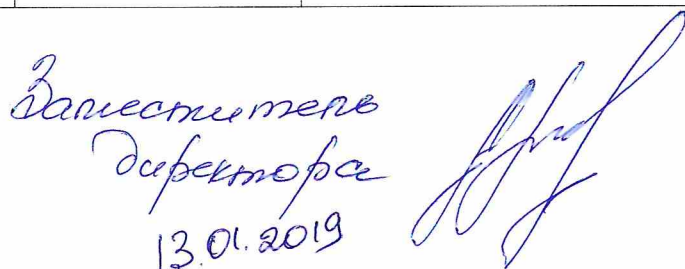 Заместитель
директора
13.01.2019